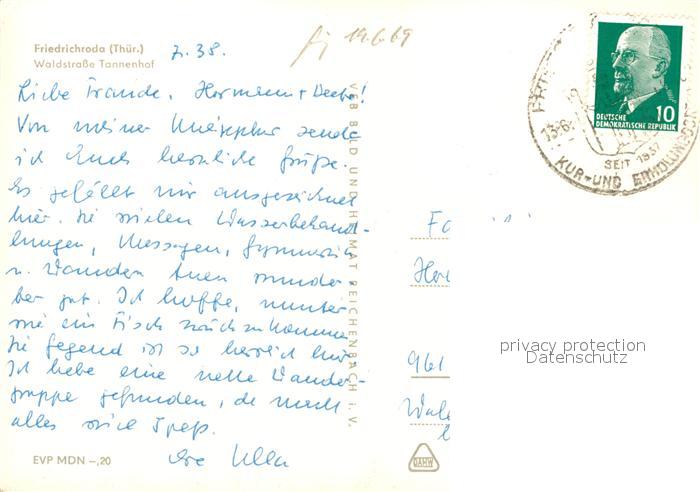 Friedrichroda (Thür.)
Waldstraße Tannenhof
z. 38.
19.6.69
Liebe Hermann + !
Von meiner sende
ich Euch herzliche Grüße.
Es gefällt mir ausgezeichnet
hier. Die vielen Wasserbehand-
lungen, Massagen, Gymnastik
u. Wandern tuen wunder
bar gut. Ich hoffe, munter
wie ein Fisch zurückzukommen.
Die Gegend ist so herrlich hier.
Ich habe eine nette Wander-
gruppe gefunden, da macht
alles viel Spaß.
Eure Ulla
EVP MDN –,20
VEB BILD UND HEIMAT REICHENBACH i. V.
DAHW
10
DEUTSCHE
DEMOKRATISCHE REPUBLIK
13.6.
SEIT 1937
KUR- UND ERHOLUNGSORT
Fa
Her
961
privacy protection
Datenschutz